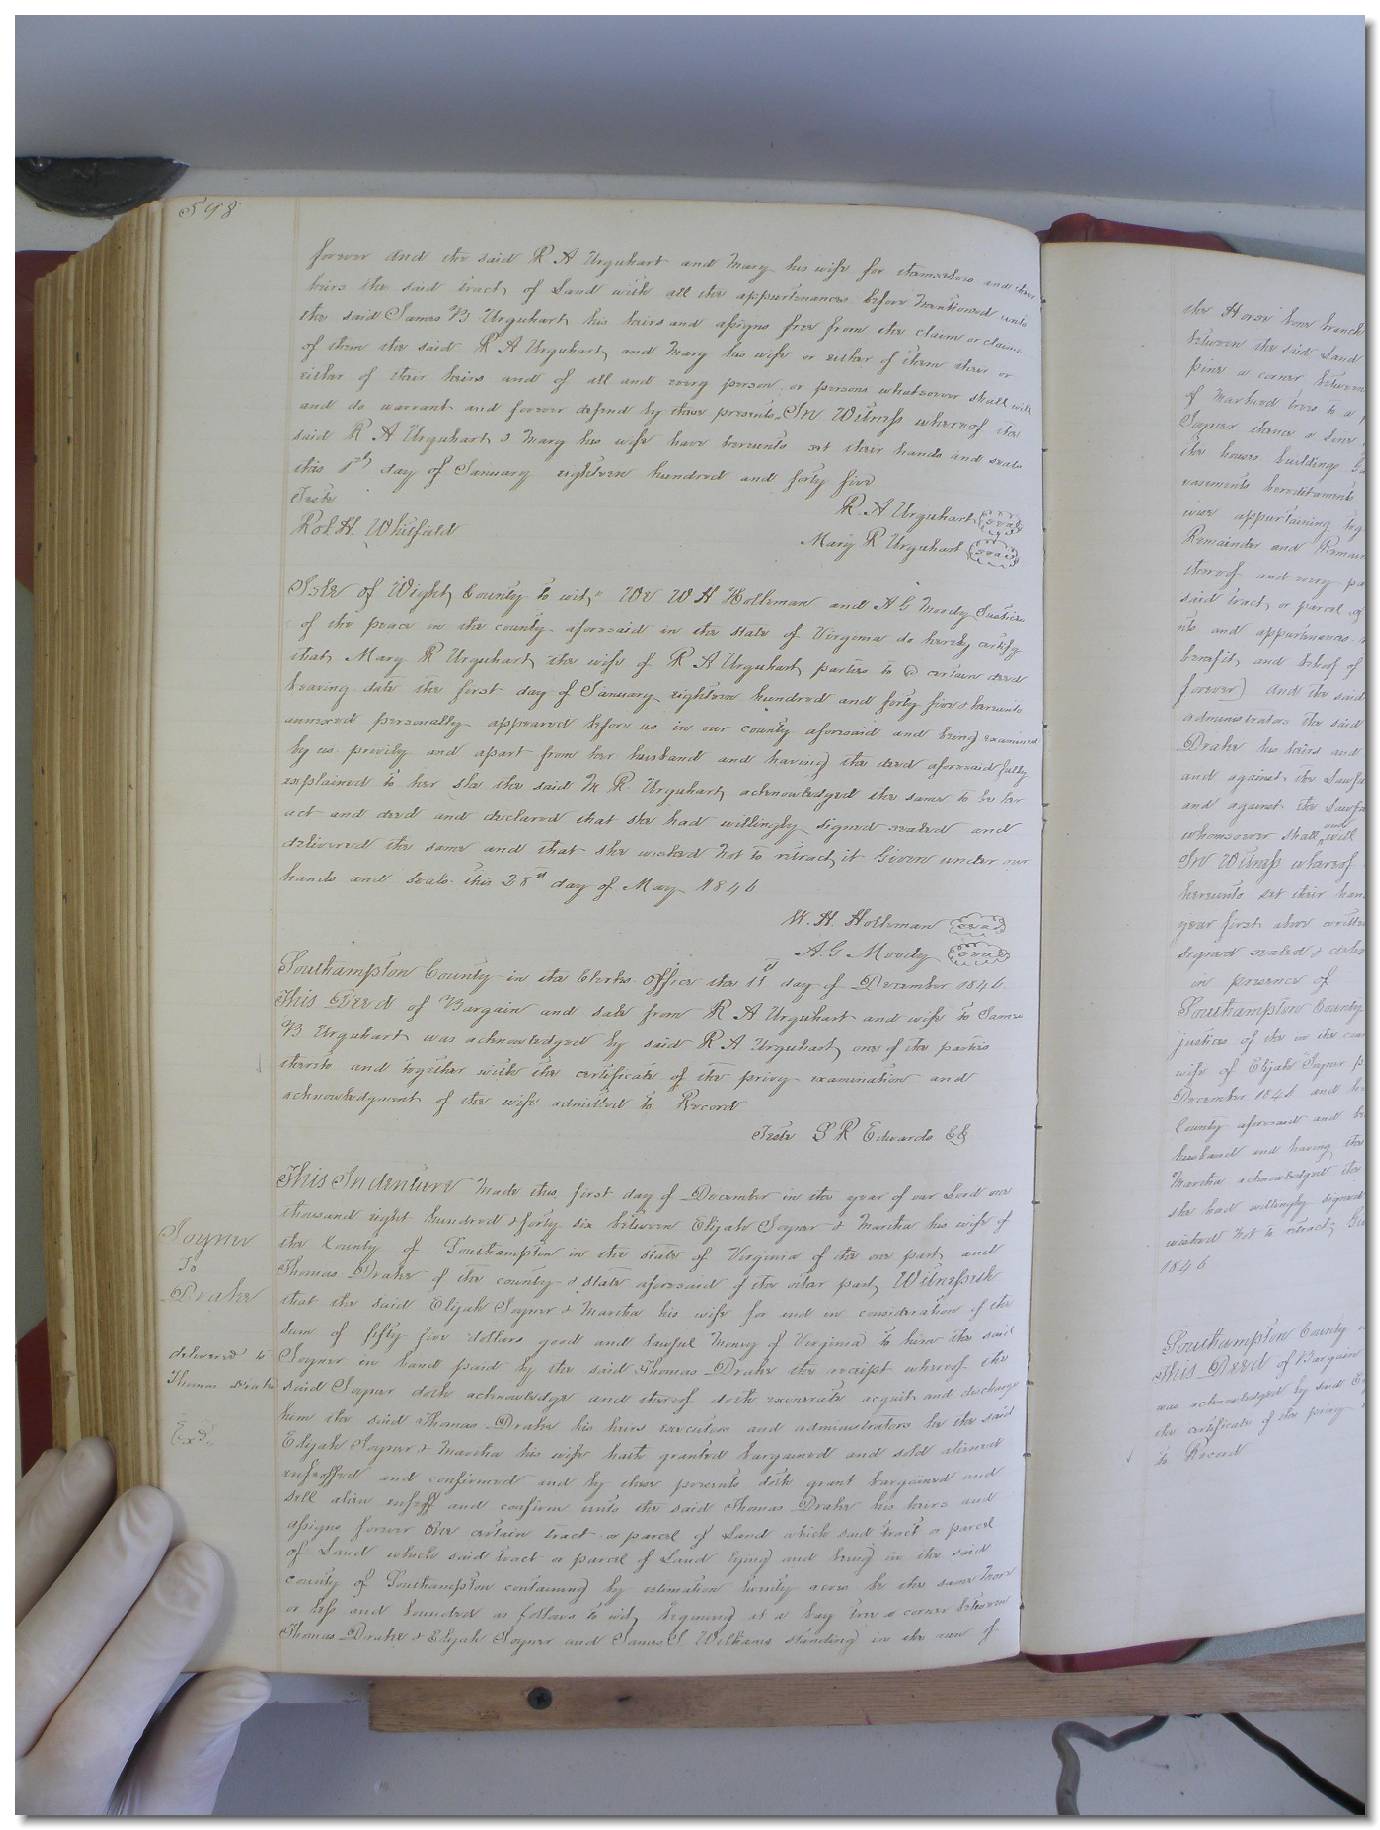 598
forever And the said R A Urquhart and Mary his wife for themselves and their
heirs the said tract of Land with all the appurtenances before mentioned unto
the said James B Urquhart his heirs and assigns free from the claim or claims
of them the said R A Urquhart and Mary his wife or either of them their or
either of their heirs and of all and every person or persons whatsoever shall will
and do warrant and forever defend by these presents. In Witness whereof the
said R A Urquhart & Mary his wife have hereunto set their hands and seals
this 1st day of January eighteen hundred and forty five
Teste
R A Urquhart seal
Rob. H. Whitfield
Mary R Urquhart seal
Isle of Wight County to wit, We W H Holleman and A G Moody Justices
of the peace in the county aforesaid in the State of Virginia do hereby certify
that Mary R Urquhart the wife of R A Urquhart parties to a certain deed
bearing date the first day of January eighteen hundred and forty five & hereunto
annexed personally appeared before us in our county aforesaid and being examined
by us privily and apart from her husband and having the deed aforesaid fully
explained to her she the said M R Urquhart acknowledged the same to be her
act and deed and declared that she had willingly signed sealed and
delivered the same and that she wished not to retract it Given under our
hands and seals this 28th day of May 1846
W. H. Holleman seal
A. G Moody seal
Southampton County in the Clerks Office the day of December 1846
This Deed of Bargain and sale from R A Urquhart and wife to James
B Urquhart was acknowledged by said R A Urquhart one of the parties
thereto and together with the certificate of the privy examination and
acknowledgment of the wife admitted to Record
Teste L R Edwards CC
This Indenture Made this first day of December in the year of our Lord one
thousand eight hundred & forty six between Elijah Joyner & Martha his wife of
the County of Southampton in the state of Virginia of the one part and
Thomas Drake of the county & state aforesaid of the other part, Witnesseth
that the said Elijah Joyner & Martha his wife for and in consideration of the
sum of fifty five dollars good and lawful money of Virginia to him the said
Joyner in hand paid by the said Thomas Drake the receipt whereof the
said Joyner doth acknowledge and thereof doth exonerate acquit and discharge
him the said Thomas Drake his heirs executors and administrators he the said
Elijah Joyner & Martha his wife hath granted bargained and sold aliened
enfeoffed and confirmed and by these presents doth grant bargained and
sell alien enfeoff and confirm unto the said Thomas Drake his heirs and
assigns forever One certain tract or parcel of Land which said tract or parcel
of Land which said tract or parcel of Land lying and being in the said
county of Southampton containing by estimation twenty acres be the same more
or less and bounded as follows to wit, Beginning at a bay tree a corner between
Thomas Drake & Elijah Joyner and James S Williams standing in the run of
Joyner
To
Drake
delivered to
Thomas Drake
Exd.
the Horse bone branch
between the said Land
pine a corner between
of Marked trees to a
Joyner thence a line
the houses buildings
easements hereditaments
wise appertaining
Remainder and
thereof and every
said tract or parcel of
and appurtenances
benefit and behoof of
forever) And the said
administrators the said
Drake his heirs and
and against the
and against the
whomsoever shall and will
In Witness whereof
hereunto set their
year first above
signed sealed &
in presence of
Southampton County
justices of the in the
wife of Elijah Joyner
December 1846 and
County aforesaid and
husband and having the
Martha acknowledged the
she had willingly signed
wished not to retract
1846
Southampton County
This Deed of Bargain
was acknowledged by said
the certificate of the privy
to Record